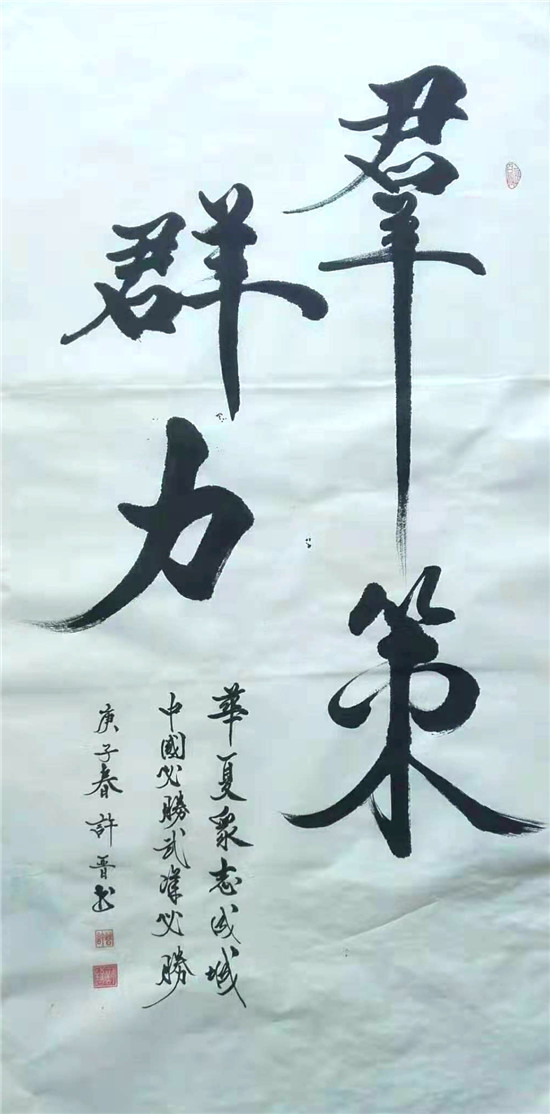 羣策
群力
華夏衆志成城
中國必勝武漢必勝
庚子春許晋书